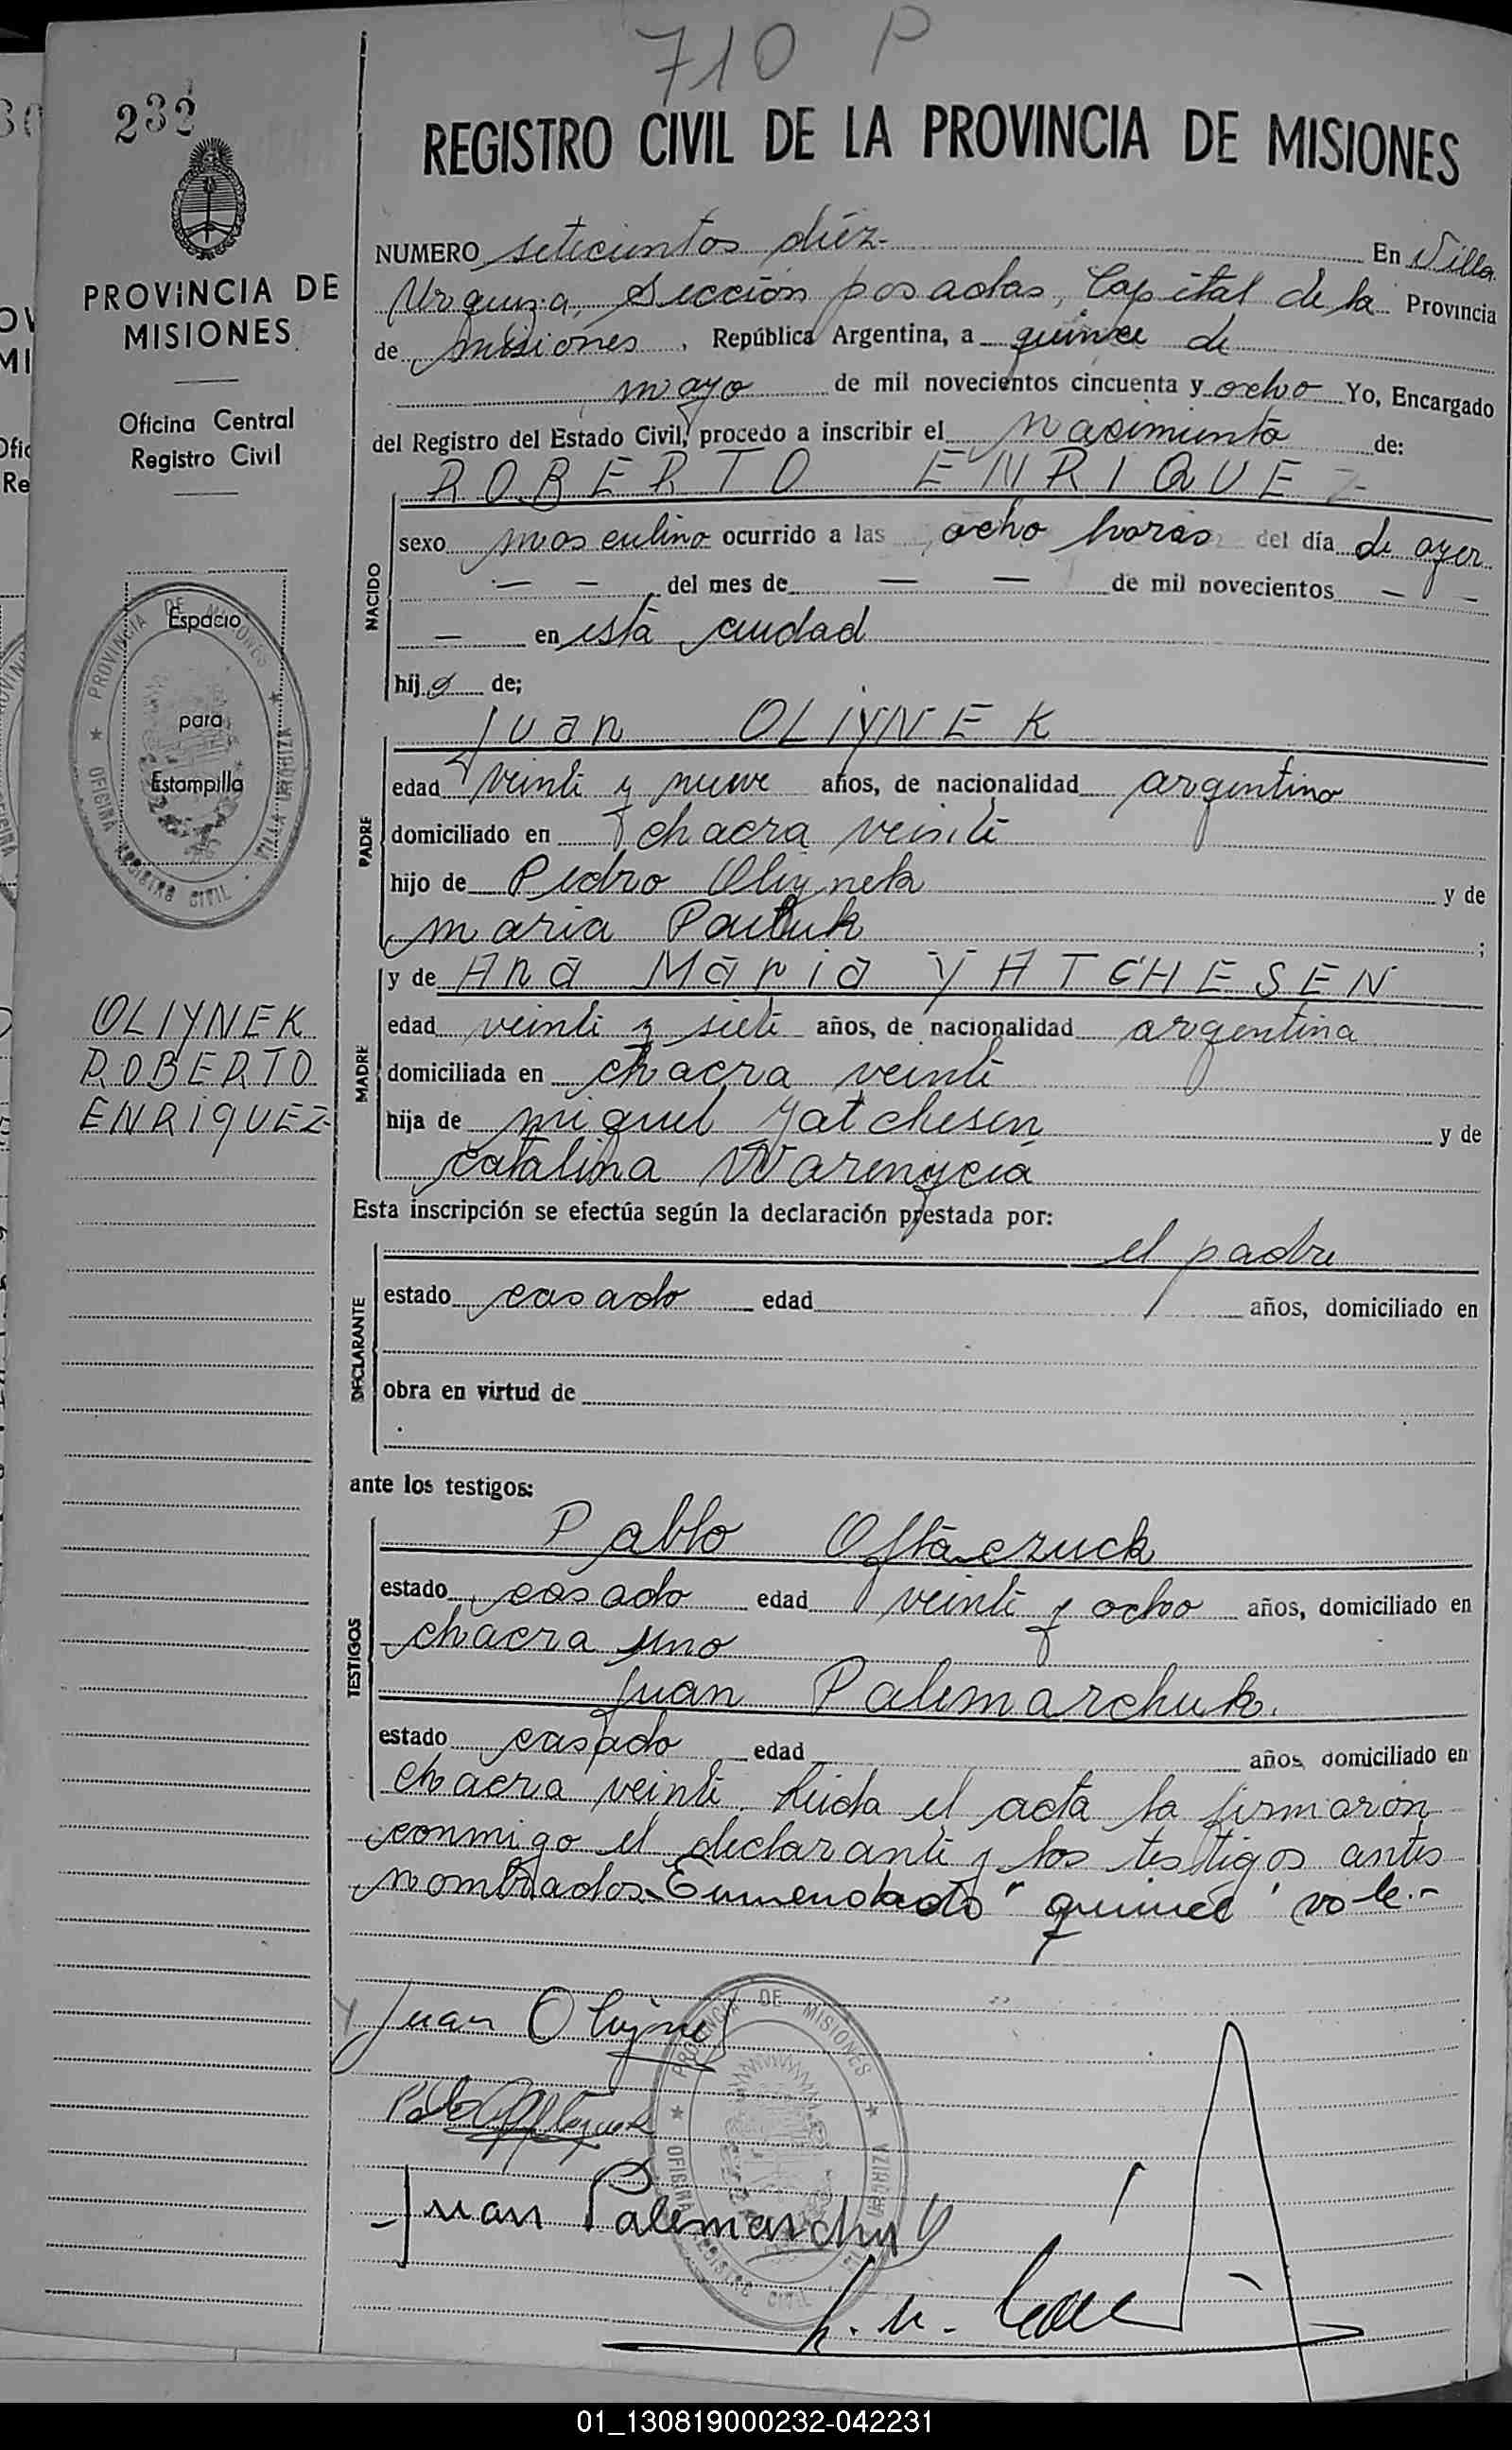 710 P
232
REGISTRO CIVIL DE LA PROVINCIA DE MISIONES
PROVINCIA DE
MISIONES
Oficina Central
Registro Civil
Espacio
para
Estampilla
PROVINCIA DE MISIONES
OFICINA REGISTRO CIVIL - VILLA URQUIZA
OLIYNEK
ROBERTO
ENRIQUEZ-
NUMERO setecientos diéz- En Villa
Urquiza, Sección posadas, Capital de la Provincia
de misiones, República Argentina, a quince de
mayo de mil novecientos cincuenta y ocho Yo, Encargado
del Registro del Estado Civil, procedo a inscribir el nacimiento de:
ROBERTO ENRIQUEZ-
NACIDO
sexo masculino ocurrido a las ocho horas del día de ayer
— — del mes de — — de mil novecientos — —
— en esta ciudad
hijo de;
Juan OLIYNEK
PADRE
edad veinti y nueve años, de nacionalidad argentino
domiciliado en chacra veinte
hijo de Pedro Oliynek y de
maria ;
y de Ana Maria YATCHESEN
MADRE
edad veinti y siete años, de nacionalidad argentina
domiciliada en chacra veinte
hija de miguel Yatchesen y de
catalina Warenycia
Esta inscripción se efectúa según la declaración prestada por:
el padre
DECLARANTE
estado casado edad años, domiciliado en
obra en virtud de
ante los testigos:
Pablo Oftaczuck
TESTIGOS
estado casado edad veinti y ocho años, domiciliado en
chacra uno
Juan Palemarchuk.
estado casado edad años domiciliado en
chacra veinte. Leida el acta la firmaron
conmigo el declarante y los testigos antes
nombrados-Enmendado "quince" vale.-
Juan Oliynek
Juan Palemarchuk
PROVINCIA DE MISIONES
OFICINA REGISTRO CIVIL
01_130819000232-042231